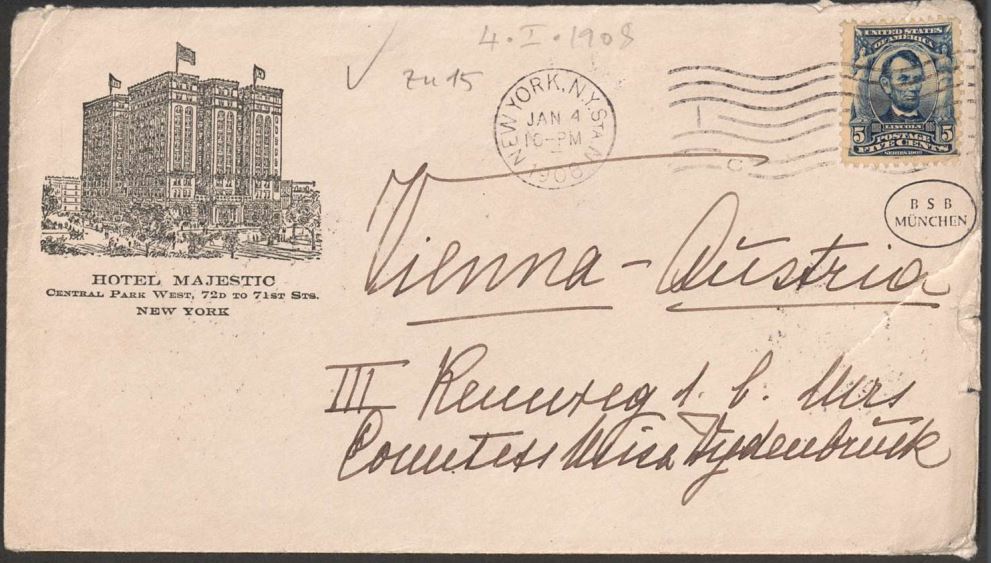 4.I.1908
zu 15
NEW YORK, N.Y. STA. N
JAN 4
10-PM
1908
UNITED STATES
OF AMERICA
LINCOLN
5 POSTAGE 5
FIVE CENTS
SERIES 1902
B S B
MÜNCHEN
HOTEL MAJESTIC
CENTRAL PARK WEST, 72D TO 71ST STS.
NEW YORK
Vienna - Austria
III Rennweg 1. b. Mrs
Countess Misa Wydenbruck